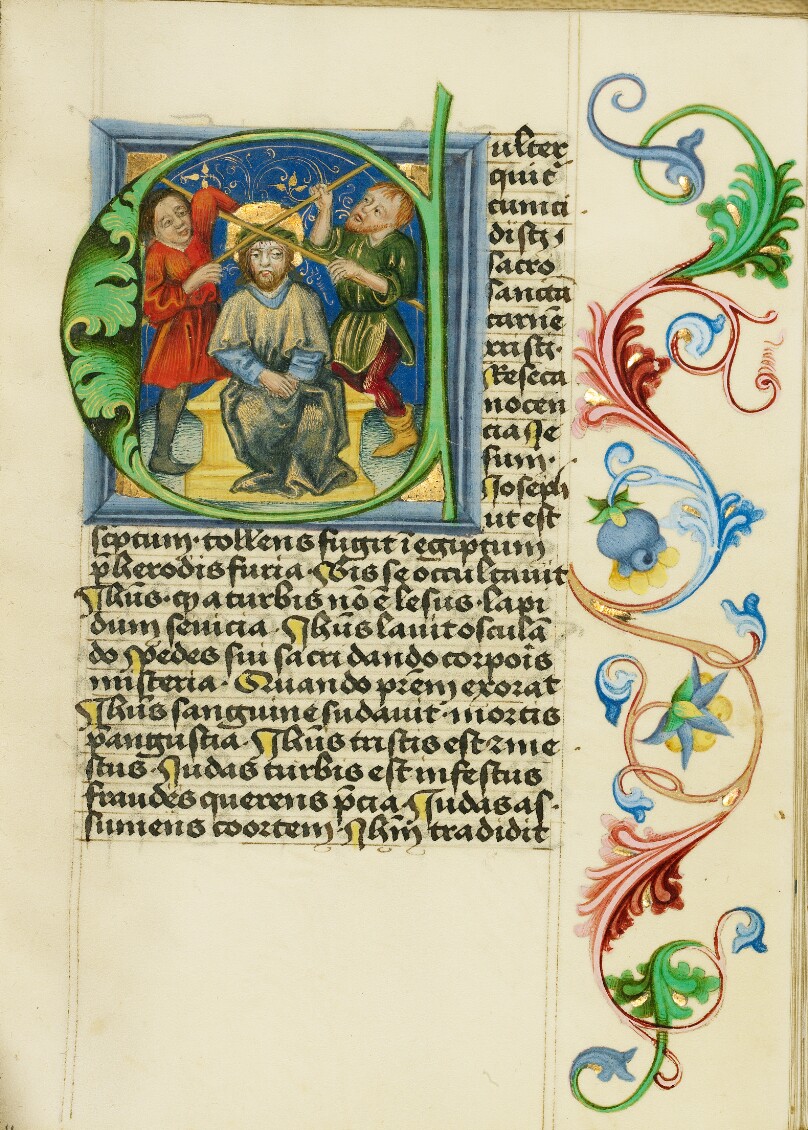 Culter
qui c
cuncti
discꝫ
sacro
sancta
carnē
xpisti·
Reseca
nocen
cia Je
sum·
Joseph
ut est
scptum· tollens fugit ī egiptum
ꝑ herodis furia· Bis se occultauit
Jhūs· qꝫ a turbis nō ē lesus· lapi
dum seuicia· Jhūs lauit osculā
do Pedes sui sacri dando corporis
misteria· Quando prēm exorat
Jhūs sanguinē sudauit· mortis
p angustia· Jhūs tristis est ⁊ me
stus· Judas turbis est infestus
fraudes querens pcia· Judas as·
sumens coortem· Jhm̄ tradidit